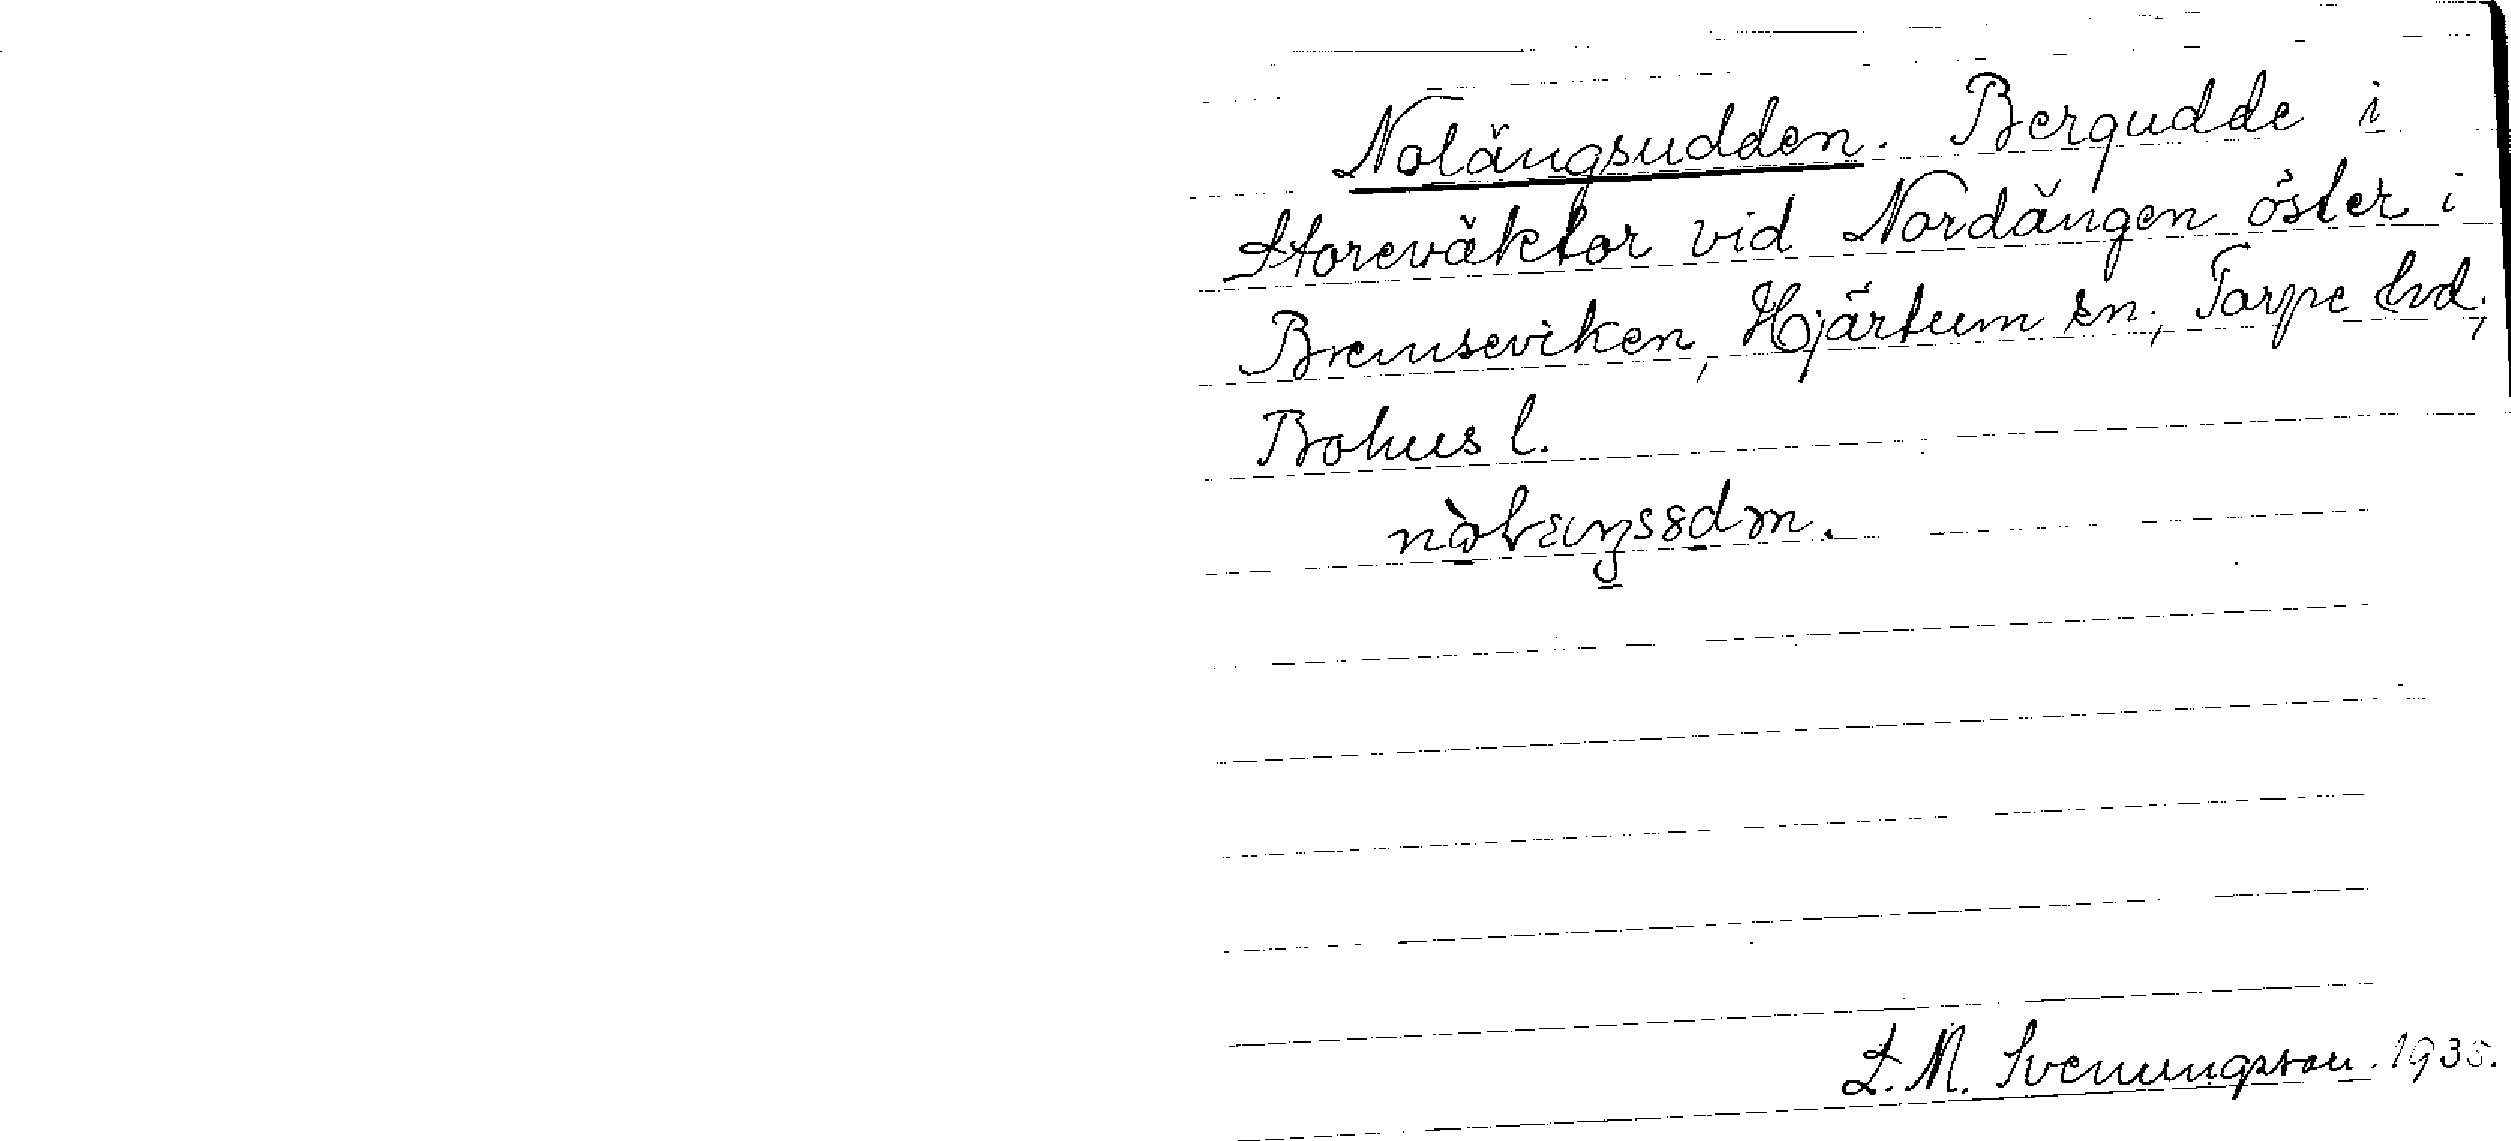 Nolängsudden. Bergudde i
Storeväktor vid Nordängen öster i
Bremseviken, Hjärtum sn, Torpe hd,
Bohus l.
S. M. Svenungsson. 1935.